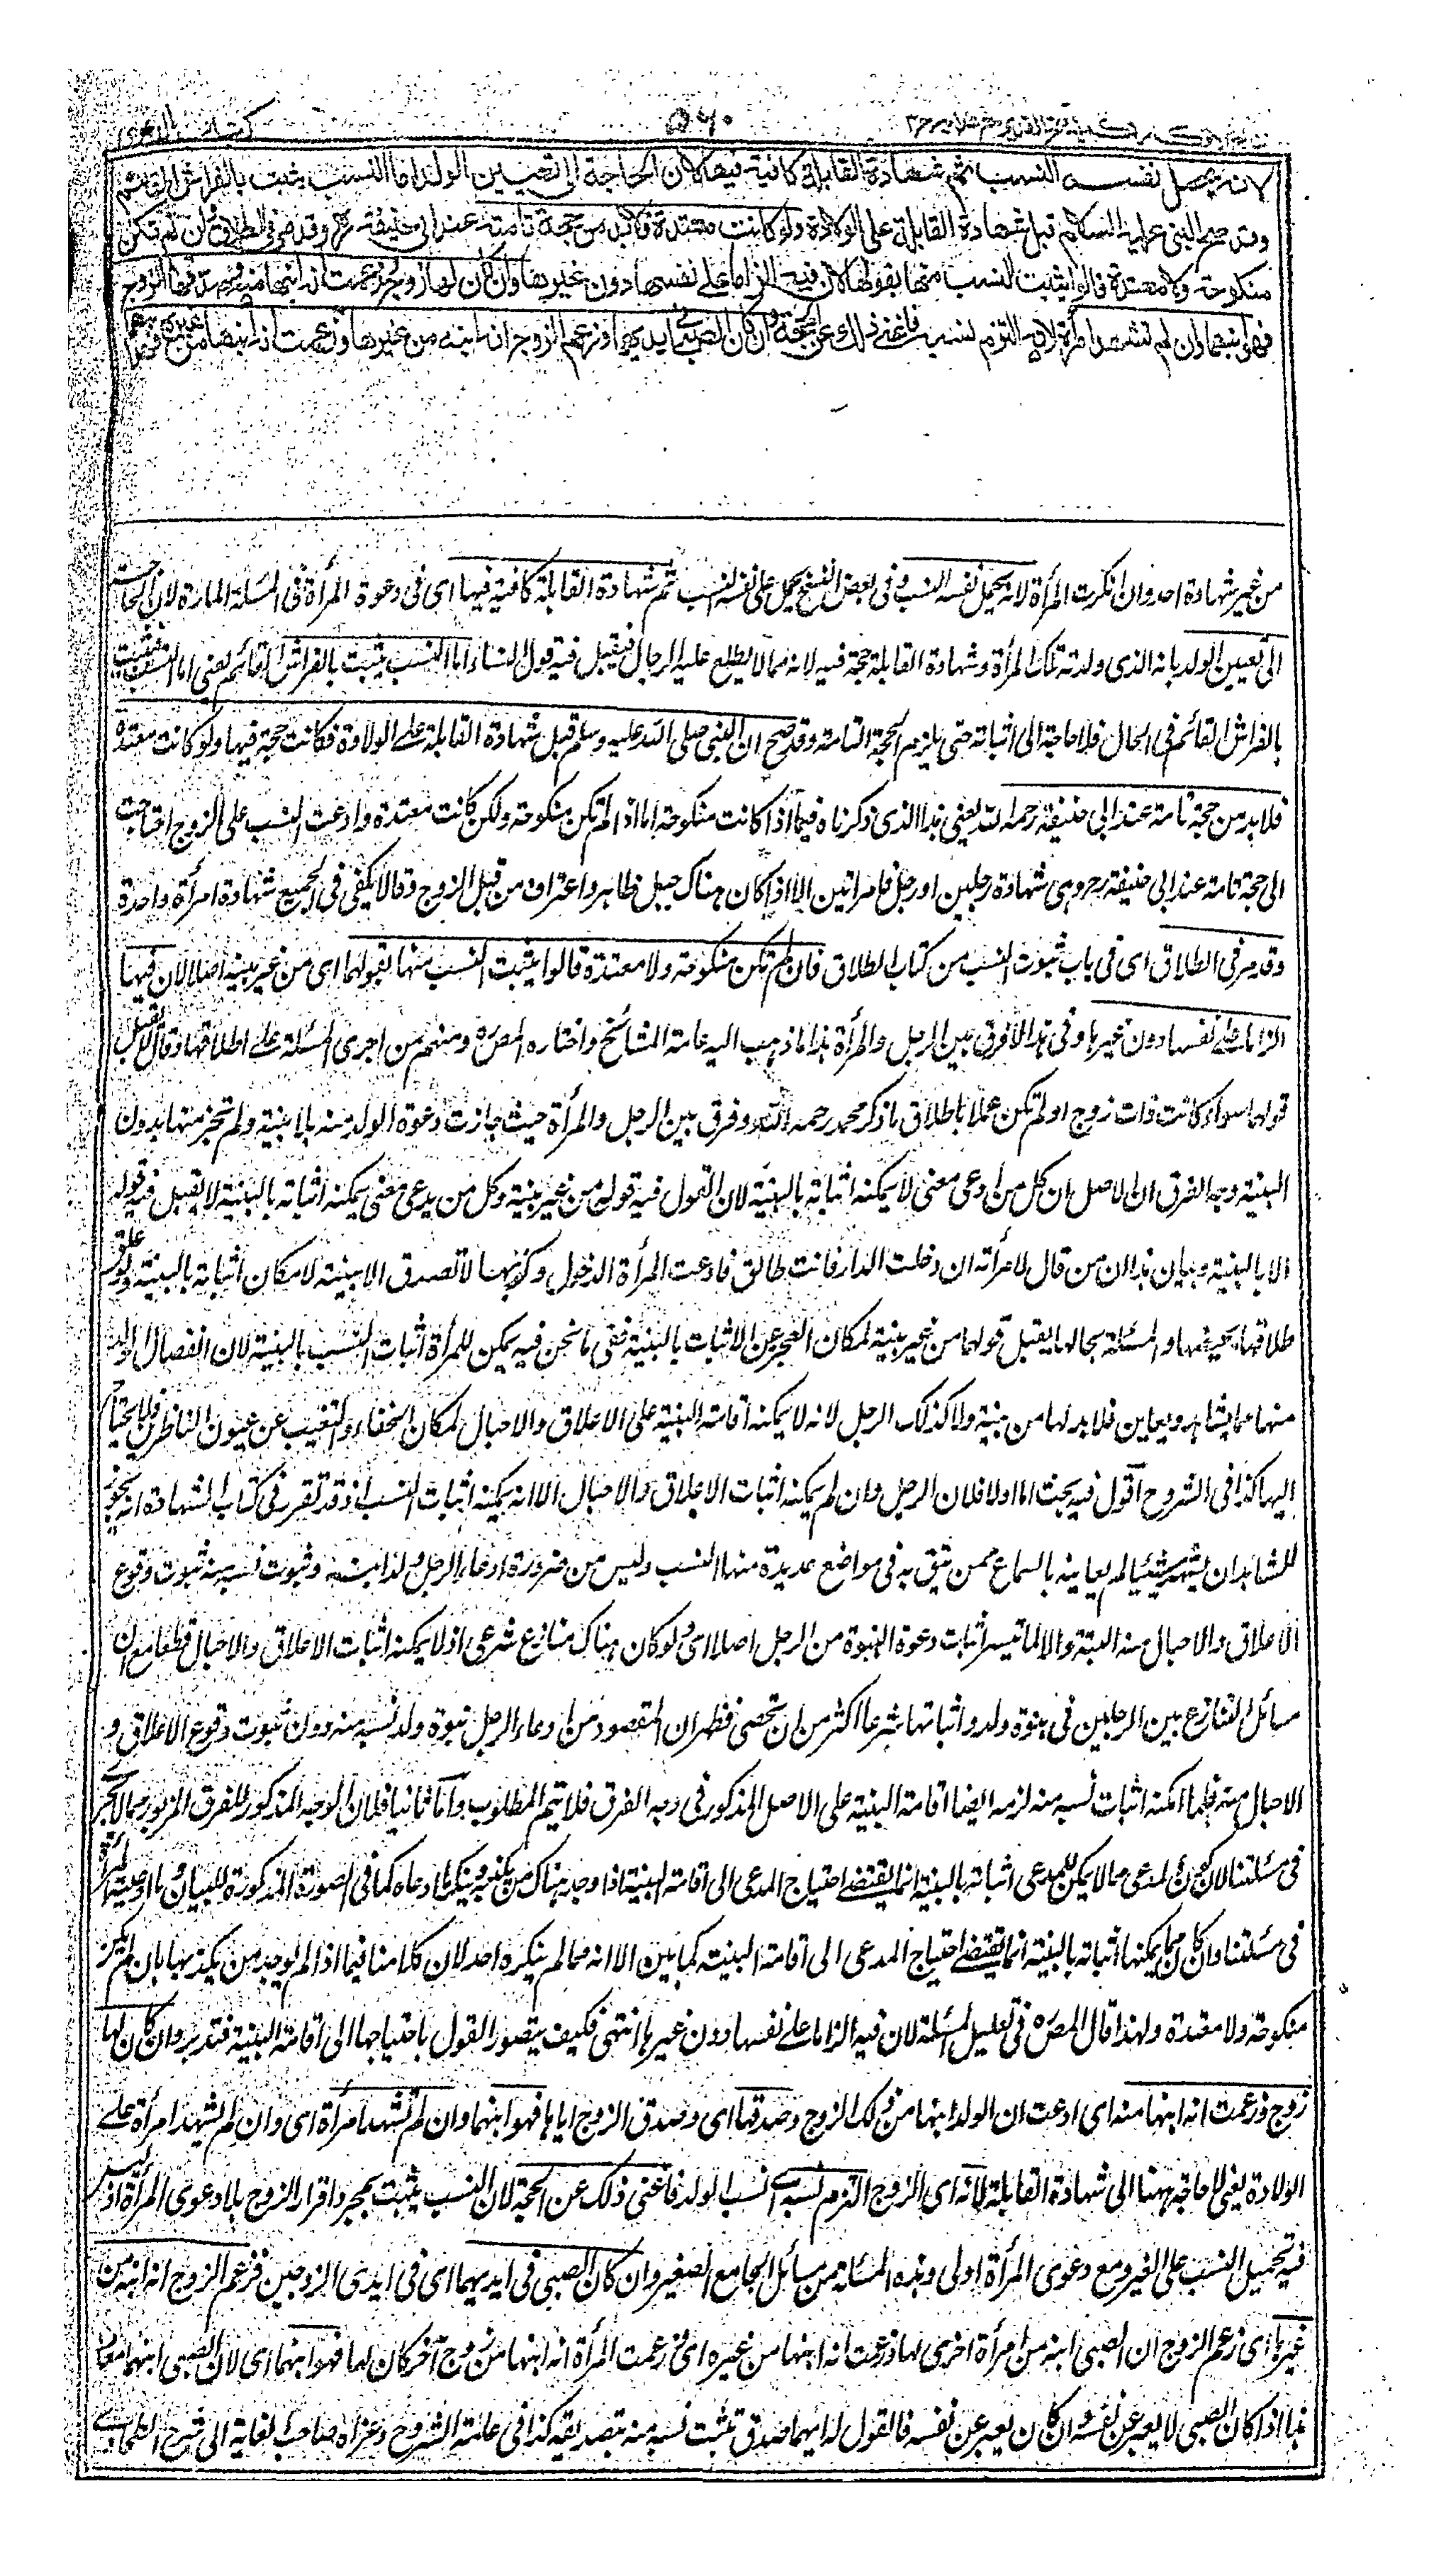 كتاب الدعوى
٥٦٠
لانه يحمل نفسه النسب ثم شهادة القابلة كافية فيها لان الحاجة الى تعيين الولد اما النسب يثبت بالفراش القائم
وقد صح ان النبي عليه السلام قبل شهادة القابلة على الولادة ولو كانت معتدة فلا بد من حجة تامة عند ابي حنيفة رح وقد مر في الطلاق وان لم تكن
منكوحة ولا معتدة قالوا يثبت النسب منها بقولها لان فيه الزاما على نفسها دون غيرها وان كان لها زوج وزعمت انه ابنها منه وصدقها الزوج
فهو ابنهما وان لم تشهد امرأة لانه التزم نسبه فاغنى ذلك عن الحجة وان كان الصبي في ايديهما وزعم الزوج انه ابنه من غيرها وزعمت انه ابنها من غيره فهو
من غير شهادة احد وان انكرت المرأة لانه يحمل نفسه النسب وفى بعض النسخ يحمل على نفسه النسب ثم شهادة القابلة كافية فيها اى فى دعوة المرأة فى المسئلة المارة لان الحاجة
الى تعيين الولد بانه الذى ولدته تلك المرأة وشهادة القابلة حجة فيه لانه مما لا يطلع عليه الرجال فيقبل فيه قول النساء اما النسب يثبت بالفراش القائم يعنى اما النسب فيثبت
بالفراش القائم فى الحال فلا حاجة الى اثباته حتى يلزم الحجة التامة وقد صح ان النبى صلى الله عليه وسلم قبل شهادة القابلة على الولادة فكانت حجة فيها ولو كانت معتدة
فلا بد من حجة تامة عند ابى حنيفة رحمه الله يعنى هذا الذى ذكرناه فيما اذا كانت منكوحة اما اذا لم تكن منكوحة ولكن كانت معتدة وادعت النسب على الزوج احتاجت
الى حجة تامة عند ابى حنيفة رح وهى شهادة رجلين او رجل وامراتين الا اذا كان هناك حبل ظاهر واعتراف من قبل الزوج وقالا يكفى فى الجميع شهادة امرأة واحدة
وقد مر فى الطلاق اى فى باب ثبوت النسب من كتاب الطلاق فان لم تكن منكوحة ولا معتدة قالوا يثبت النسب منها بقولها اى من غير بينة اصلا لان فيها
الزاما على نفسها دون غيرها وفى هذا لا فرق بين الرجل والمرأة هذا ما ذهب اليه عامة المشائخ واختاره المصره ومنهم من اجرى المسئلة على اطلاقها وقال لا يقبل
قولها سواء كانت ذات زوج او لم تكن عملا باطلاق ما ذكر محمد رحمه الله وفرق بين الرجل والمرأة حيث جازت دعوة الولد منه بلا بينة ولم تجز منها بدون
البينة وجه الفرق ان الاصل ان كل من ادعى معنى لا يمكنه اثباته بالبينة لان القول فيه قوله من غير بينة وكل من يدعى معنى يمكنه اثباته بالبينة لا يقبل فيه قوله
الا بالبينة وبيان هذا ان من قال لامرأته ان دخلت الدار فانت طالق فادعت المرأة الدخول وكذبها لا تصدق الا ببينة لامكان اثباته بالبينة ولو علق
طلاقها بحيضها والمسئلة بحالها يقبل قولها من غير بينة لمكان العجز عن الاثبات بالبينة ففى ما نحن فيه يمكن للمرأة اثبات النسب بالبينة لان انفصال الولد
منها مما يشاهد ويعاين فلا بد لها من بينة ولا كذلك الرجل لانه لا يمكنه اقامة البينة على الاعلاق والاحبال لمكان الخفاء والتغيب عن عيون الناظرين فلا يحتاج
اليها كذا فى الشروح اقول فيه بحث اما اولا فلان الرجل وان لم يمكنه اثبات الاعلاق والاحبال الا انه يمكنه اثبات النسب اذ قد تقرر فى كتاب الشهادة انه يجوز
للشاهد ان يشهد بشئ لم يعاينه بالسماع ممن يثق به فى مواضع عديدة منها النسب وليس من ضرورة ادعاء الرجل ولدا ابنه وثبوت نسبه منه ثبوت وقوع
الاعلاق والاحبال منه البتة والا لما تيسر اثبات دعوة البنوة من الرجل اصلا اى ولو كان هناك منازع شرعى اذ لا يمكنه اثبات الاعلاق والاحبال قطعا مع ان
مسائل التنازع بين الرجلين فى بنوة ولد واثباتها شرعا اكثر من ان تحصى فظهر ان المقصود من ادعاء الرجل بنوة ولد نسبه منه دون ثبوت وقوع الاعلاق و
الاحبال منه فلما امكنه اثبات نسبه منه لزمه ايضا اقامة البينة على الاصل المذكور فى وجه الفرق فلا يتم المطلوب واما ثانيا فلان الوجه المذكور للفرق المزبور مما لا يجرى
فى مسئلتنا لان كون المدعى مما لا يمكن للمدعى اثباته بالبينة انما يقتضى احتياج المدعى الى اقامة البينة اذا وجد هناك من يكذبه وينكر ما ادعاه كما فى الصورة المذكورة للبيان وما ادعته المرأة
فى مسئلتنا وان كان مما يمكنها اثباته بالبينة انما يقتضى احتياج المدعى الى اقامة البينة كما بين الا انه مما لم ينكره احد لان كلامنا فيما اذا لم يوجد من يكذبها بان لم تكن
منكوحة ولا معتدة ولهذا قال المصره فى تعليل المسئلة لان فيه الزاما على نفسها دون غيرها انتهى فكيف يتصور القول باحتياجها الى اقامة البينة فتدبر وان كان لها
زوج وزعمت انه ابنها منه اى ادعت ان الولد ابنها من ذلك الزوج وصدقها اى وصدق الزوج اياها فهو ابنهما وان لم تشهد امرأة اى وان لم تشهد امرأة على
الولادة يعنى لا حاجة ههنا الى شهادة القابلة لانه اى الزوج التزم نسبه اى نسب الولد فاغنى ذلك عن الحجة لان النسب يثبت بمجرد اقرار الزوج بلا دعوى المرأة اذ ليس
فيه تحميل النسب على الغير ومع دعوى المرأة اولى وهذه المسئلة من مسائل الجامع الصغير وان كان الصبى فى ايديهما اى فى ايدى الزوجين فزعم الزوج انه ابنه من
غيرها اى زعم الزوج ان الصبى ابنه من امرأة اخرى لها وزعمت انه ابنها من غيره اى زعمت المرأة انه ابنها من زوج آخر كان لها فهو ابنهما اى لان الصبى ابنهما معا
هذا اذا كان الصبى لا يعبر عن نفسه وان كان يعبر عن نفسه فالقول له ايهما صدق يثبت نسبه منه بتصديقه كذا فى عامة الشروح وعزاه صاحب الغاية الى شرح الطحاوى